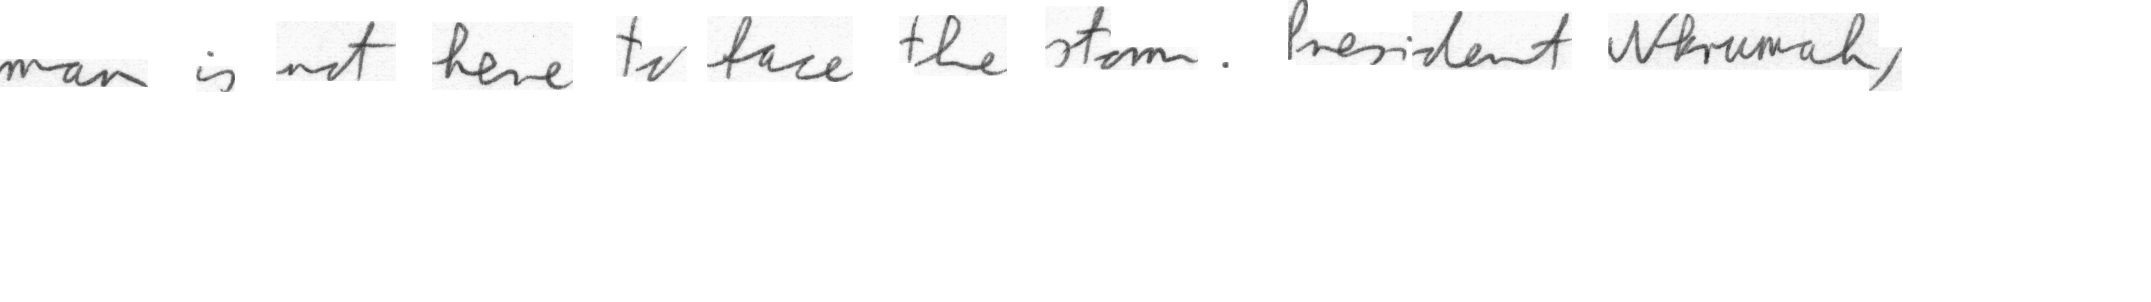 man is not here to face the storm. President Nkrumah,